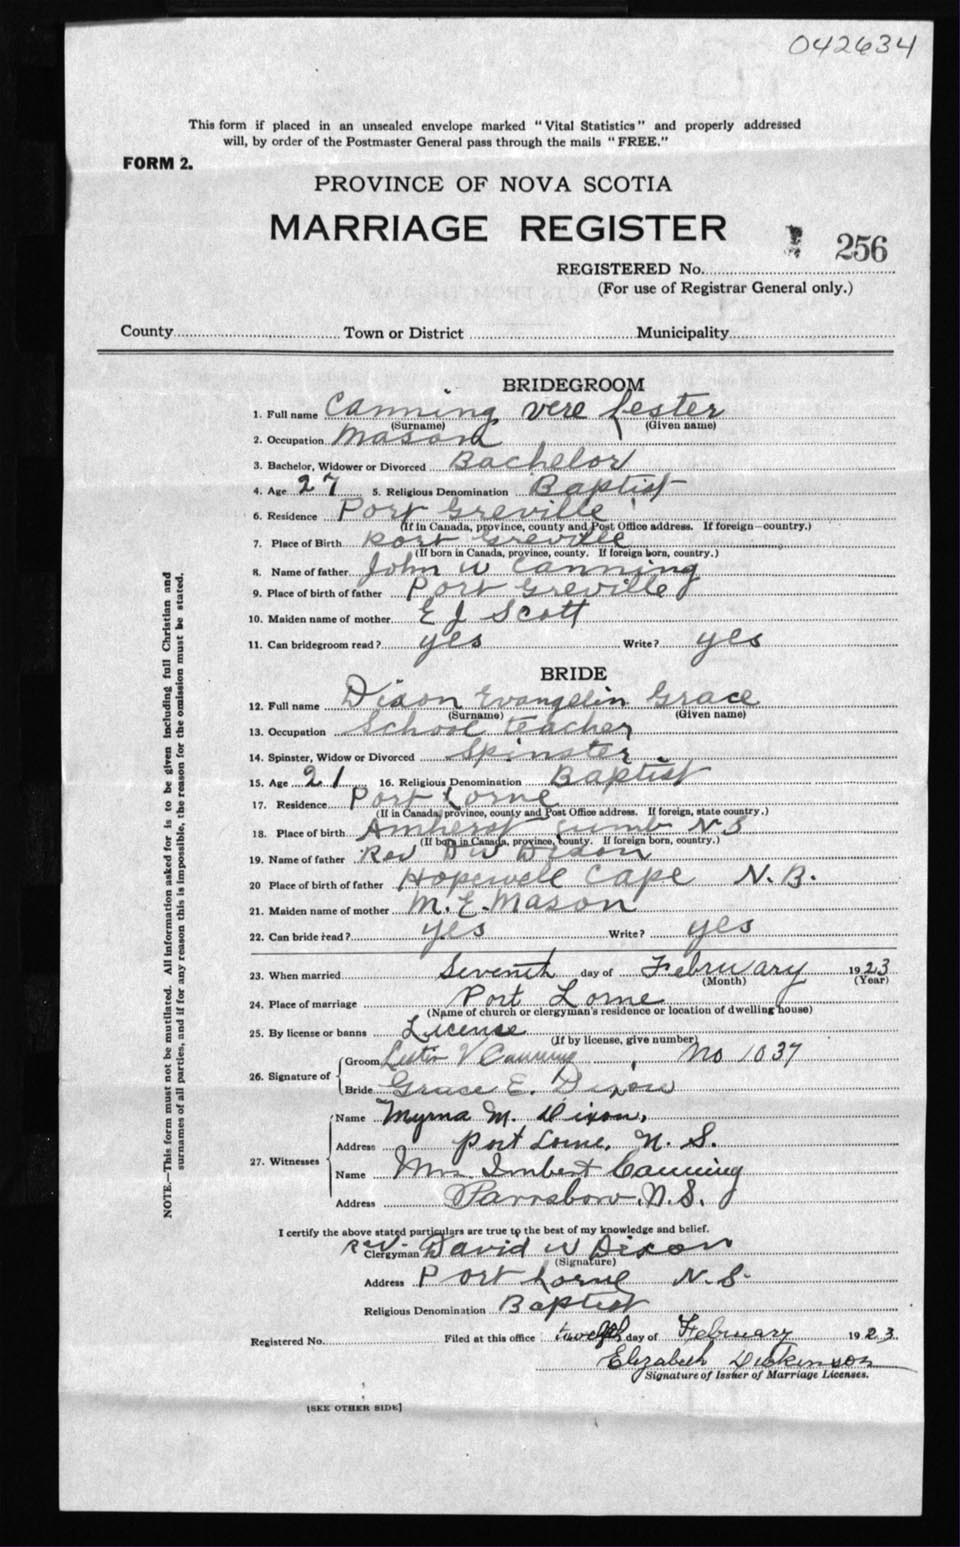 042634
This form if placed in an unsealed envelope marked "Vital Statistics" and properly addressed
will, by order of the Postmaster General pass through the mails "FREE."
FORM 2.
PROVINCE OF NOVA SCOTIA
MARRIAGE REGISTER
256
REGISTERED No.
(For use of Registrar General only.)
County Town or District Municipality
BRIDEGROOM
1. Full name Canning Vere Lester
(Surname) (Given name)
2. Occupation Mason
3. Bachelor, Widower or Divorced Bachelor
4. Age 27 5. Religious Denomination Baptist
6. Residence Port Greville
(If in Canada, province, county and Post Office address. If foreign—country.)
7. Place of Birth Port Greville
(If born in Canada, province, county. If foreign born, country.)
8. Name of father John W Canning
9. Place of birth of father Port Greville
10. Maiden name of mother E J Scott
11. Can bridegroom read? yes Write? yes
BRIDE
12. Full name Dixon Evangelin Grace
(Surname) (Given name)
13. Occupation School teacher
14. Spinster, Widow or Divorced Spinster
15. Age 21 16. Religious Denomination Baptist
17. Residence Port Lorne
(If in Canada, province, county and Post Office address. If foreign, state country.)
18. Place of birth Amherst Cumb N S
(If born in Canada, province, county. If foreign born, country.)
19. Name of father Rev D W Dixon
20 Place of birth of father Hopewell Cape N.B.
21. Maiden name of mother M. E. Mason
22. Can bride read? yes Write? yes
23. When married Seventh day of February 1923
(Month) (Year)
24. Place of marriage Port Lorne
(Name of church or clergyman's residence or location of dwelling house)
25. By license or banns License
(If by license, give number)
No 1037
26. Signature of Groom Lester V Canning
Bride Grace E. Dixon
27. Witnesses Name Myrna M. Dixon,
Address Port Lorne, N. S.
Name Mrs Imbert Canning
Address Parrsboro, N.S.
I certify the above stated particulars are true to the best of my knowledge and belief.
Rev. Clergyman David W Dixon
(Signature)
Address Port Lorne N. S.
Religious Denomination Baptist
Registered No. Filed at this office twelfth day of February 1923.
Elizabeth Dickinson
Signature of Issuer of Marriage Licenses.
[SEE OTHER SIDE]
NOTE.—This form must not be mutilated. All information asked for is to be given including full Christian and
surnames of all parties, and if for any reason this is impossible, the reason for the omission must be stated.